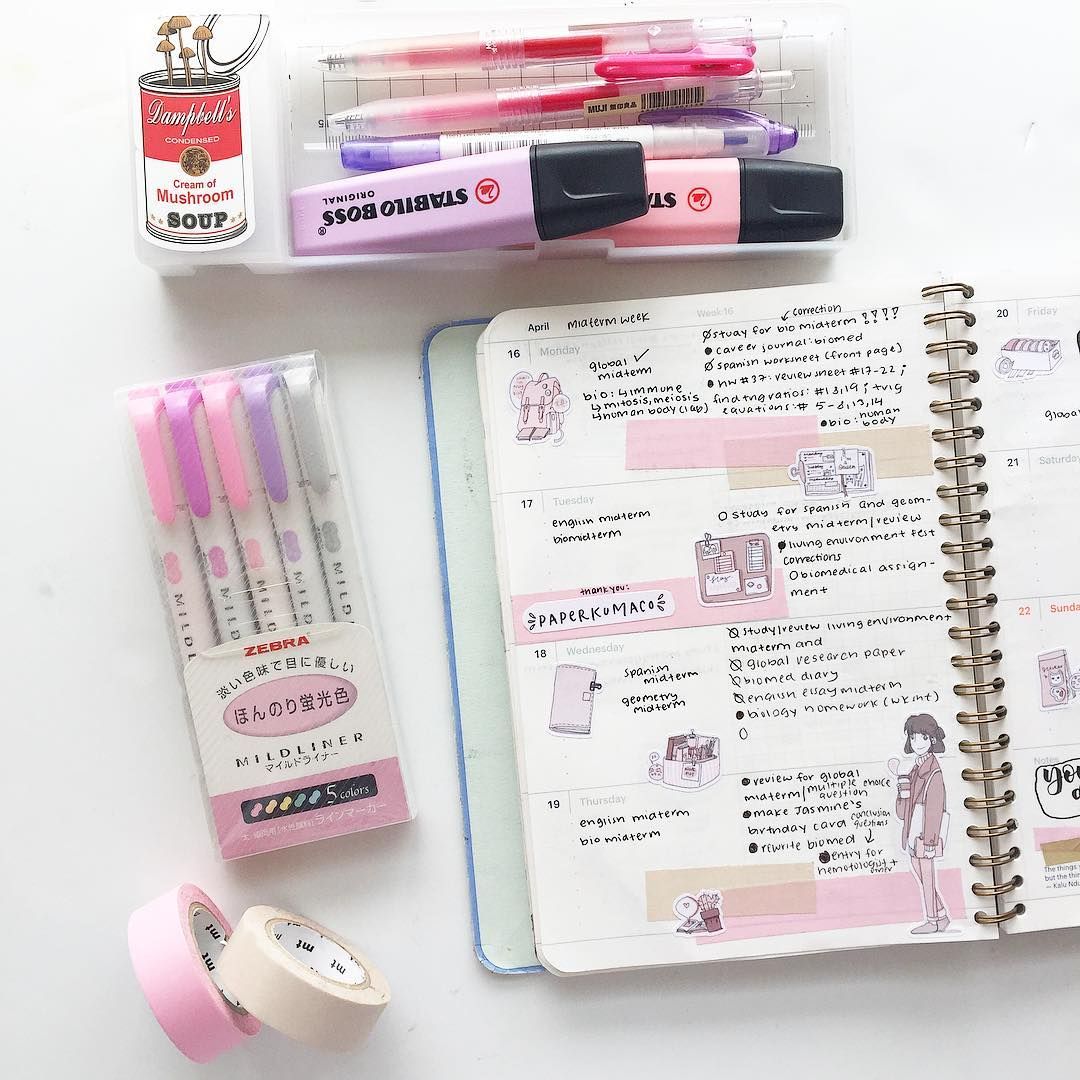 Dampbell's
CONDENSED
Cream of
Mushroom
SOUP
MUJI 無印良品
STABILO BOSS
ORIGINAL
STAB
ZEBRA
淡い色味で目に優しい
ほんのり蛍光色
MILDLINER
マイルドライナー
5 colors
ラインマーカー
MILD
MILD
mt
mt
mt
April
midterm week
Week 16
correction
16
Monday
global ✓
midterm
bio: ↳immune
↳mitosis, meiosis
↳human body (lab)
study for bio midterm !!!!
career journal: biomed
spanish worksheet (front page)
hw #37: review sheet #17-22;
equations: # 5-8,13,14
bio: human
body
17
Tuesday
english midterm
bio midterm
study for spanish and geom-
etry midterm/review
living environment test
corrections
biomedical assign-
ment
thank you:
PAPERKUMACO
18
Wednesday
spanish
midterm
geometry
midterm
study/review living environment
midterm and
global research paper
biomed diary
english essay midterm
biology homework (wksht)
19
Thursday
english midterm
bio midterm
review for global
midterm/multiple choice
question
make Jasmine's
birthday card
conclusion
questions
rewrite biomed
entry for
hematologist +
other
20
Friday
global
21
Saturday
22
Sunday
Notes
you
The things y
but the thing
— Kalu Ndu